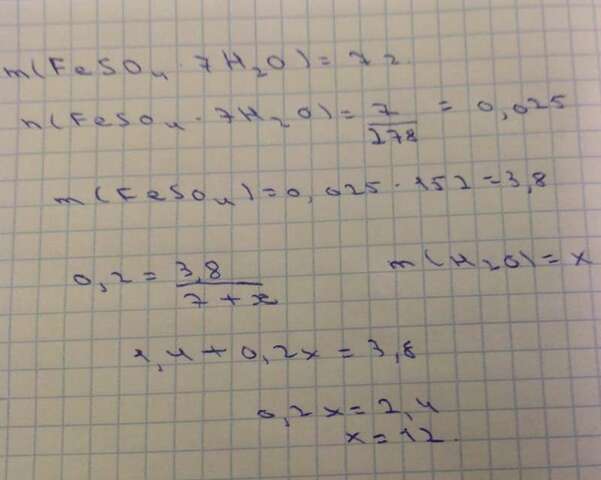 m(FeSO₄ · 7H₂O) = 7 г
n(FeSO₄ · 7H₂O) = 7/278 = 0,025
m(FeSO₄) = 0,025 · 152 = 3,8
0,2 = 3,8/(7 + x) m(H₂O) = x
1,4 + 0,2x = 3,8
0,2x = 2,4
x = 12.